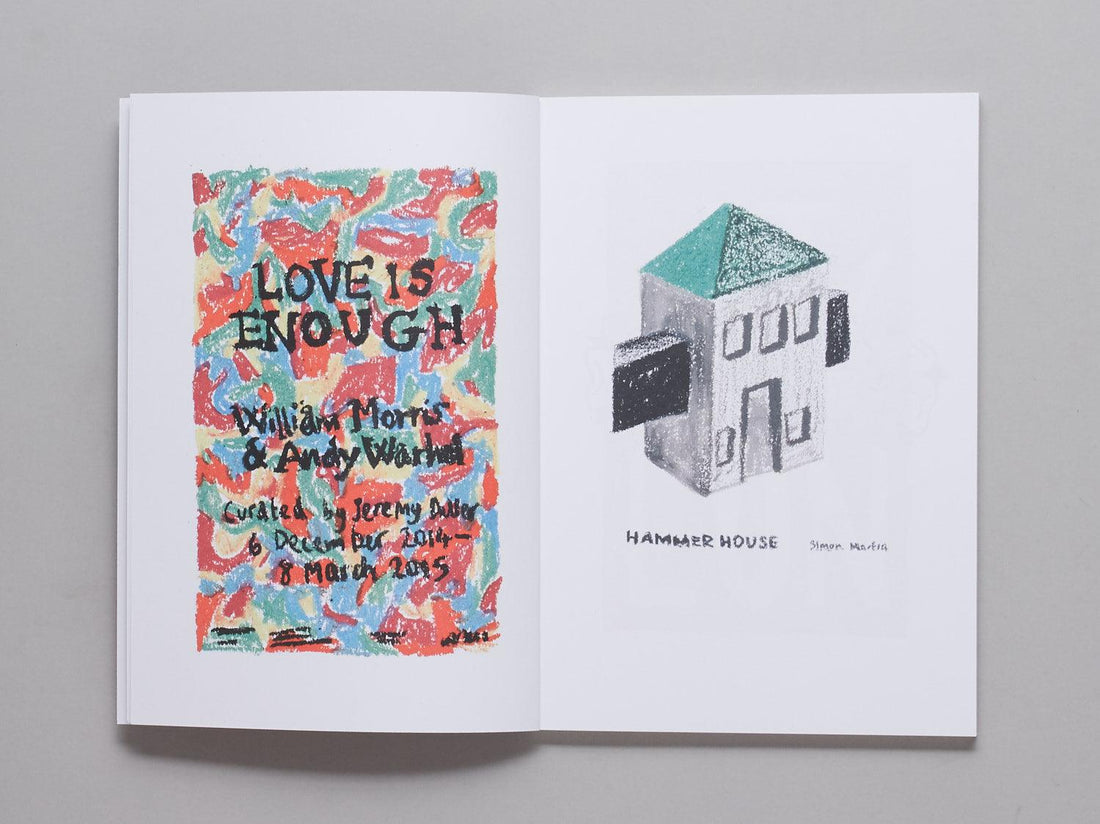 LOVE IS
ENOUGH
William Morris
& Andy Warhol
Curated by Jeremy Deller
6 December 2014–
8 March 2015
HAMMER HOUSE
Simon